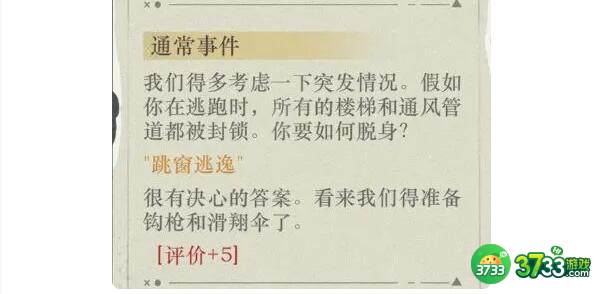 通常事件
我们得多考虑一下突发情况。假如
你在逃跑时，所有的楼梯和通风管
道都被封锁。你要如何脱身？
"跳窗逃逸"
很有决心的答案。看来我们得准备
钩枪和滑翔伞了。
[评价+5]
3733 3733游戏
.com